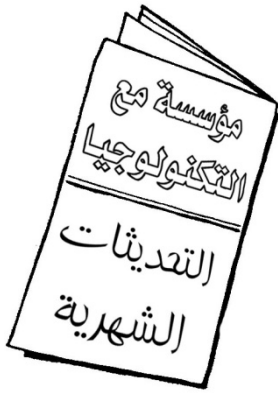 مؤسسة مع
التكنولوجيا
التحديثات
الشهرية